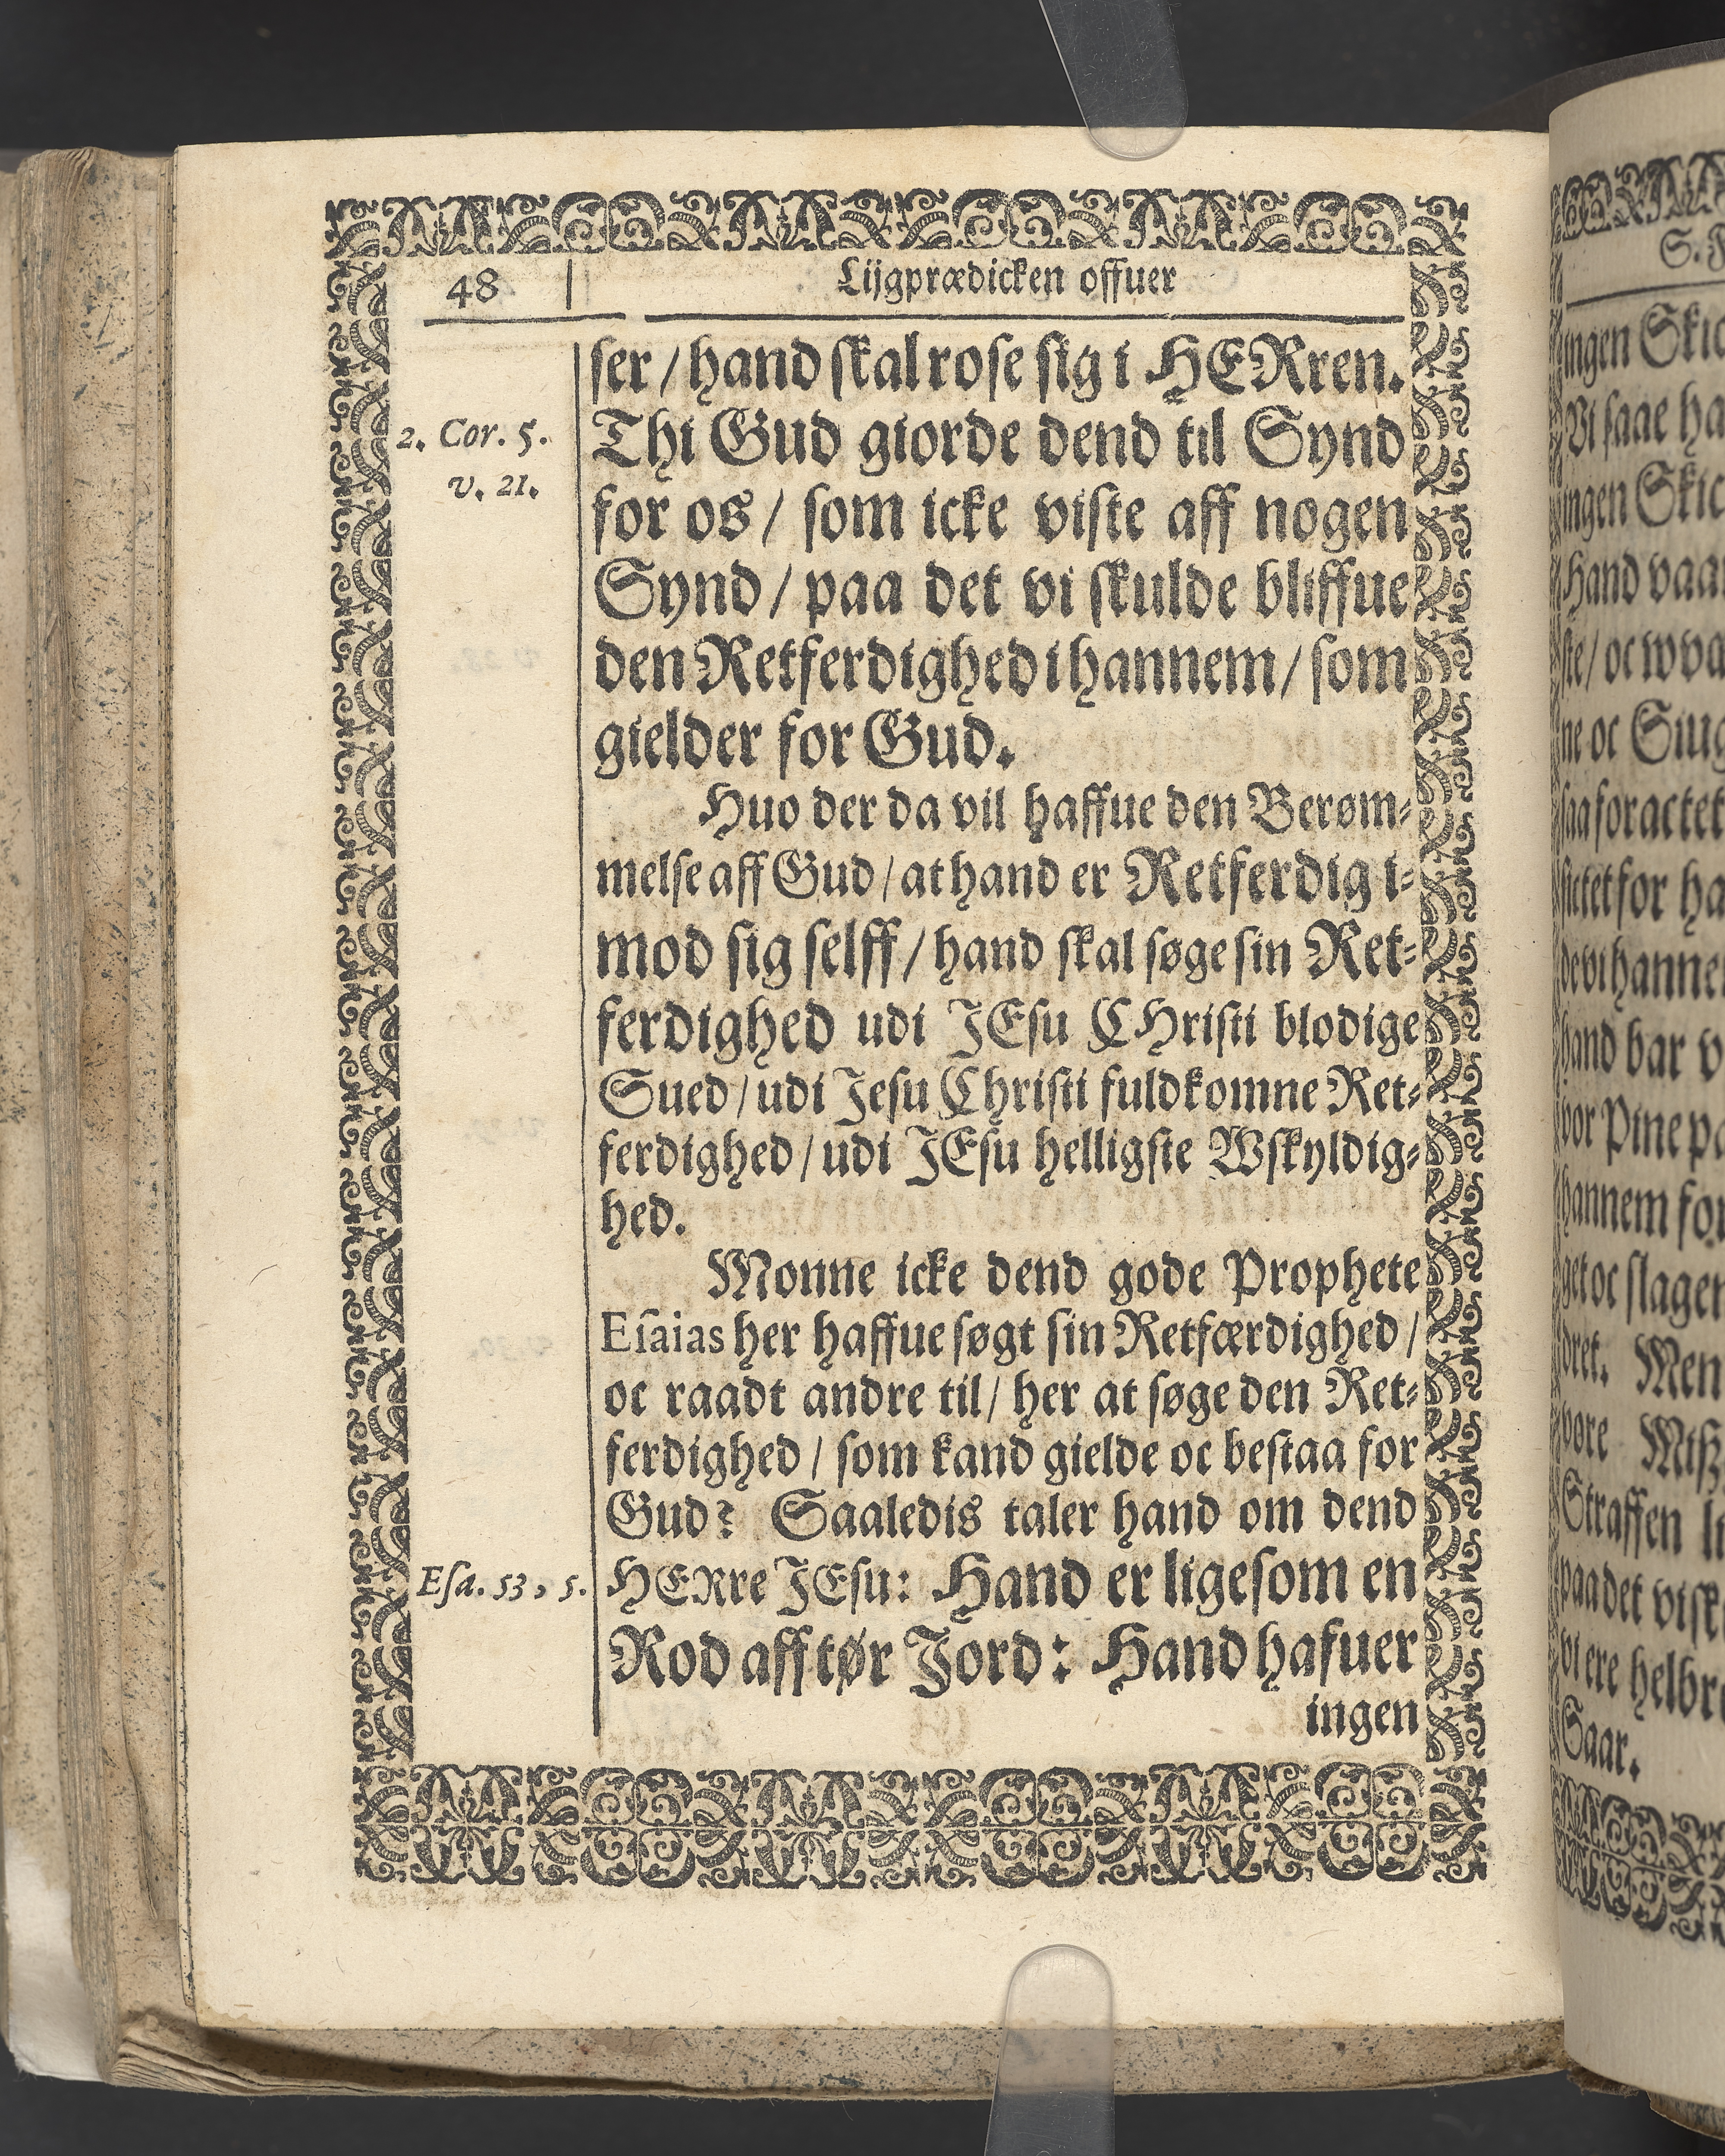 48
Lijgprædicken offuer
ser / hand skal rose sig i HERren.
2. Cor. 5.
v. 21.
Thi Gud giorde dend til Synd
for os / som icke viste aff nogen
Synd / paa det vi skulde bliffue
den Retferdighed i hannem / som
gielder for Gud.
Huo der da vil haffue den Berøm-
melse aff Gud / at hand er Retferdig i-
mod sig selff / hand skal søge sin Ret-
ferdighed udi JEsu CHristi blodige
Sued / udi Jesu Christi fuldkomne Ret-
ferdighed / udi JEsu helligste Wskyldig-
hed.
Monne icke dend gode Prophete
Esaias her haffue søgt sin Retfærdighed /
oc raadt andre til / her at søge den Ret-
ferdighed / som kand gielde oc bestaa for
Gud? Saaledis taler hand om dend
Esa. 53, 5.
HERre JEsu: Hand er ligesom en
Rod aff tør Jord: Hand hafuer
ingen
ingen
Vi saae
ingen
Hand
ne oc
hand bar
vor Pine
hannem
get oc slagen
dret. Men
vore
Straffen
paa det
vi ere
Saar.